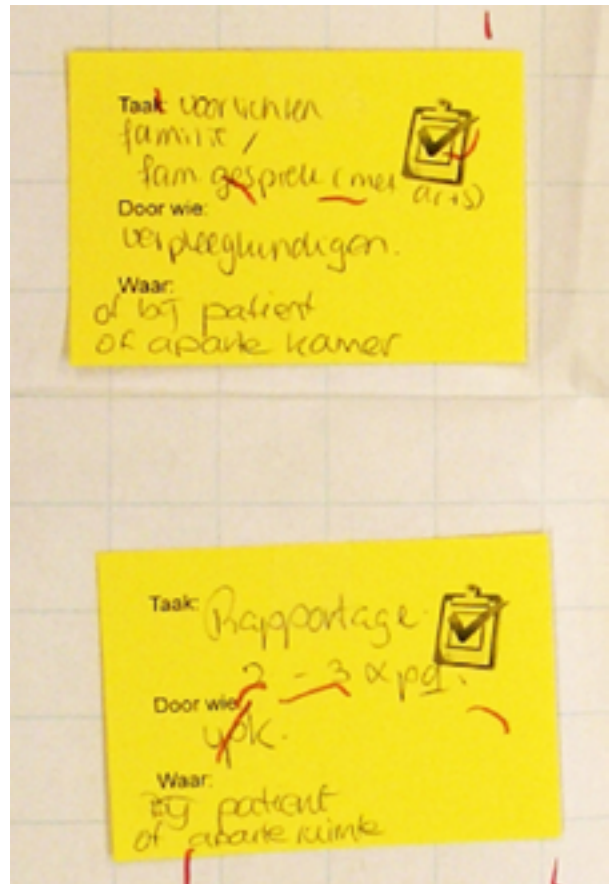 Taak: voorlichten
familie /
fam. gesprek (met arts)
Door wie:
verpleegkundigen.
Waar:
of bij patient
of aparte kamer
Taak: Rapportage.
2 - 3 x pd.
Door wie:
vpk.
Waar:
bij patient
of aparte ruimte